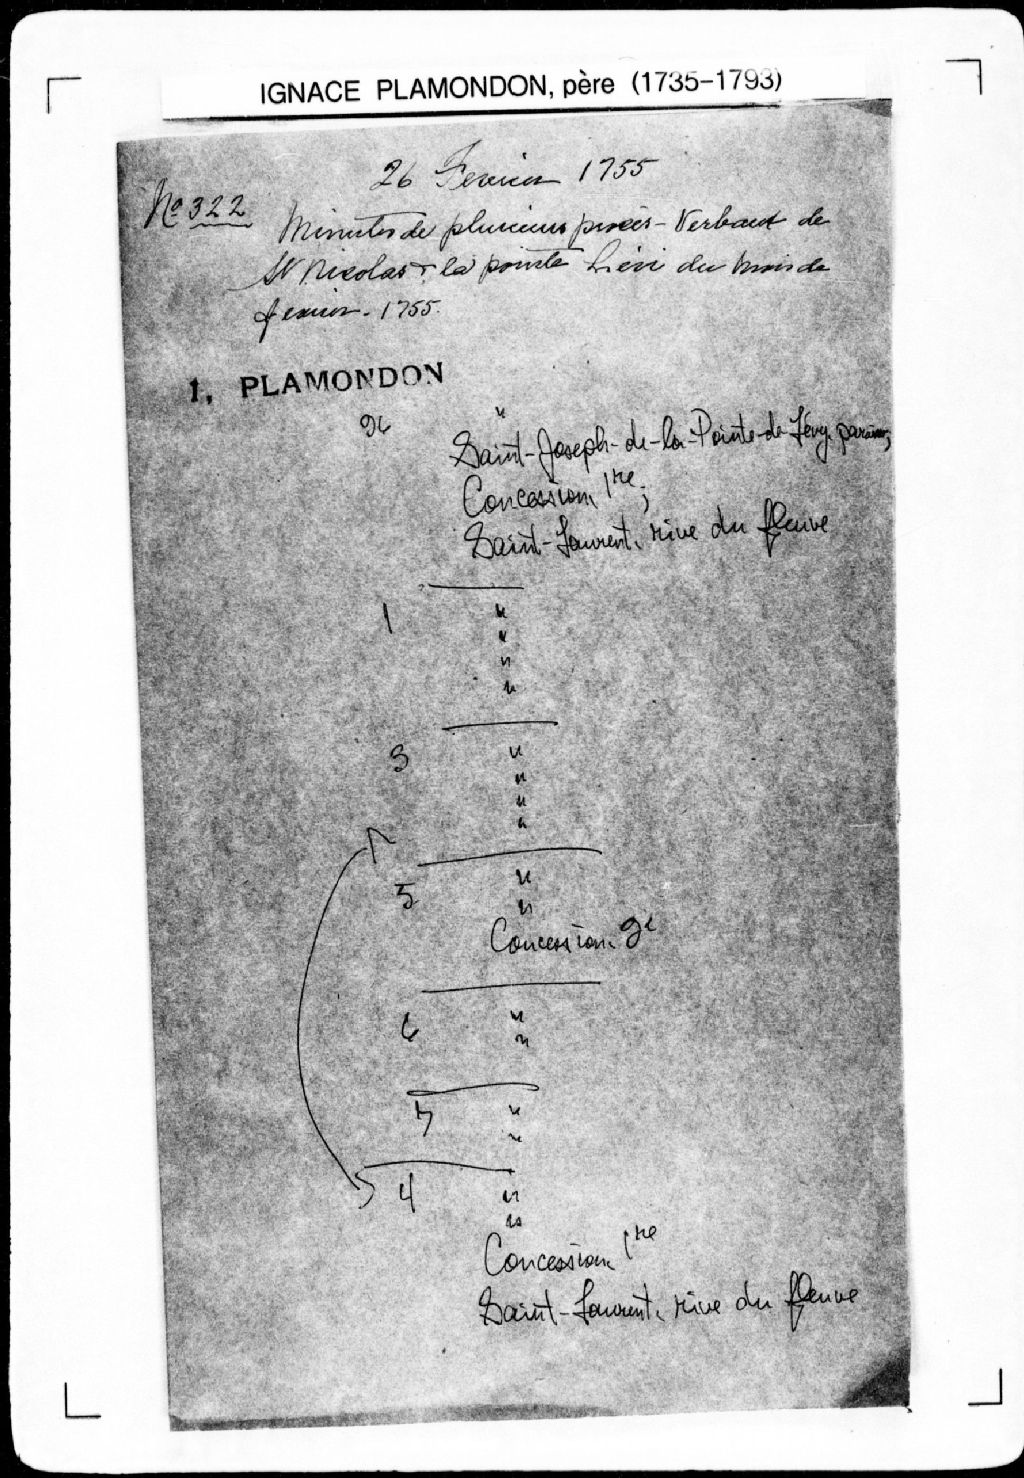 IGNACE PLAMONDON, père (1735-1793)
26 Fevrier 1755
No 322
Minutes de plusieurs procès-Verbaux de
St Nicolas & la pointe Lievi du mois de
fevrier. 1755.
1, PLAMONDON
2c "
Saint-Joseph-de-la-Pointe-de-Lévy, paroisse;
Concession 1re;
Saint-Laurent, rive du fleuve
1 "
"
"
"
3 "
"
"
"
5 "
"
Concession 2e
6 "
"
7 "
"
4 "
"
Concession 1re
Saint-Laurent, rive du fleuve